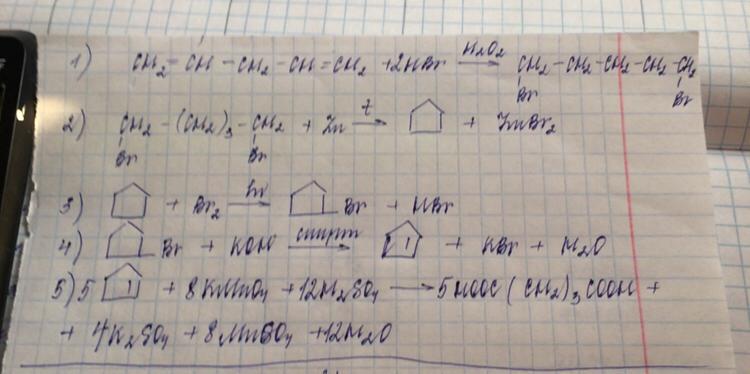 1) CH₂=CH–CH₂–CH=CH₂ +2HBr —H₂O₂→ CH₂–CH₂–CH₂–CH₂–CH₂
Br Br
2) CH₂–(CH₂)₃–CH₂ + Zn —t→ + ZnBr₂
Br Br
3) + Br₂ —hν→ Br + HBr
4) Br + KOH —спирт→ + KBr + H₂O
5) 5 + 8KMnO₄ +12H₂SO₄ → 5HOOC(CH₂)₃COOH +
+ 4K₂SO₄ +8MnSO₄ +12H₂O